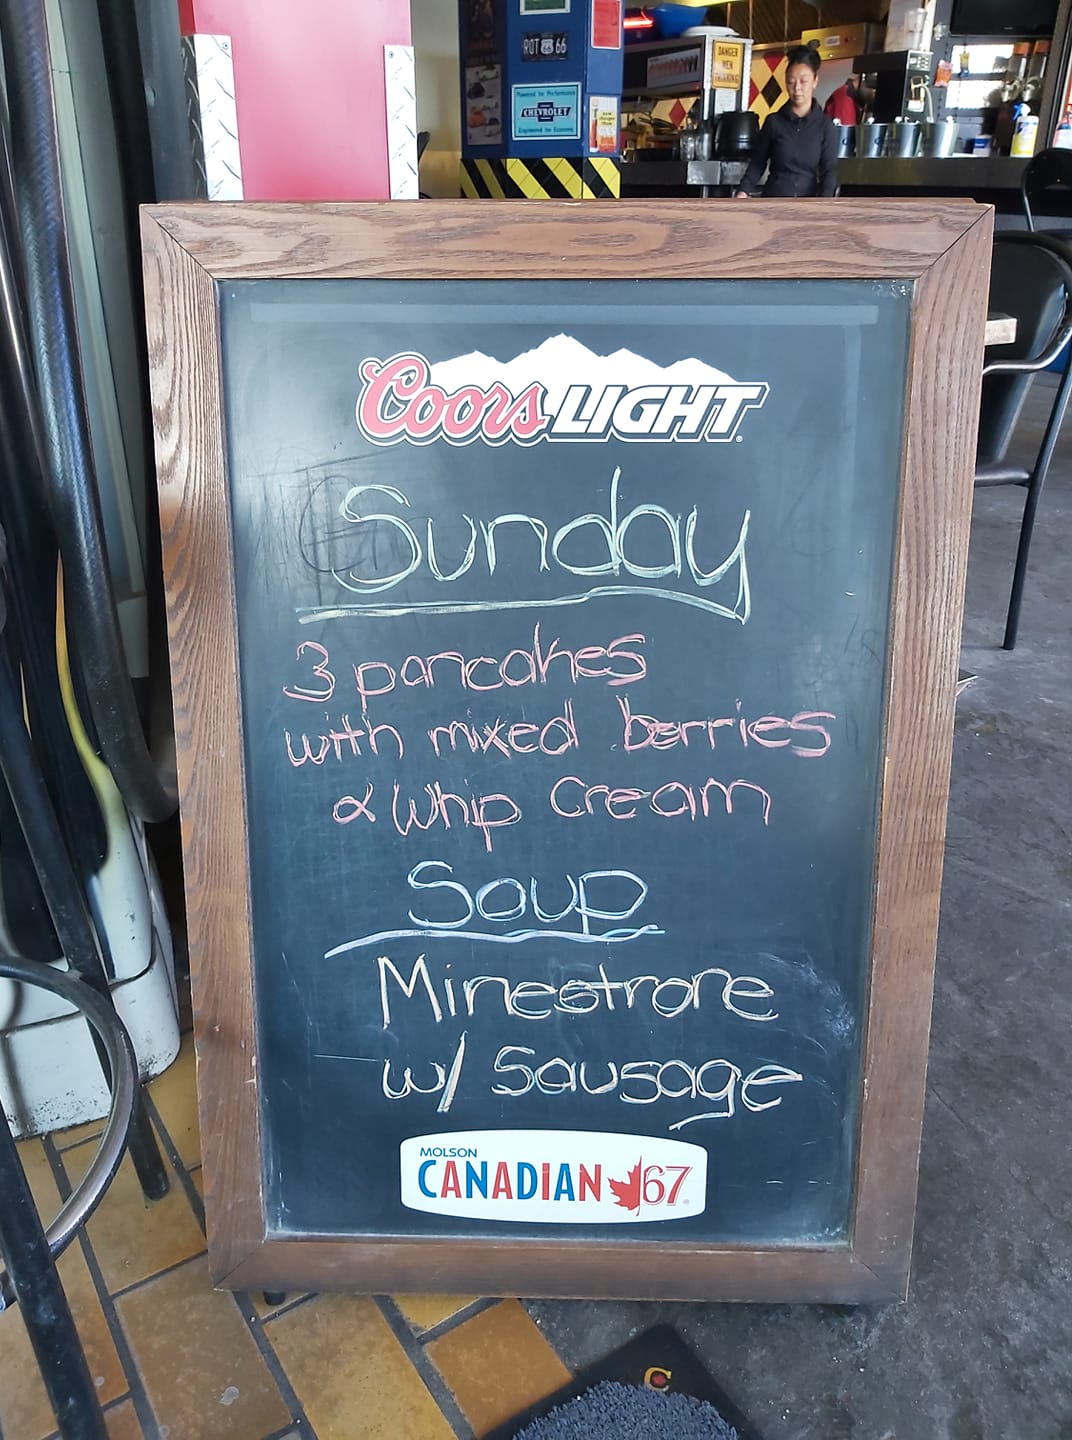 ROT 66
Powered for Performance
CHEVROLET
Engineered for Economy
DANGER
MEN
Coors LIGHT
Sunday
3 pancakes
with mixed berries
& Whip Cream
Soup
Minestrone
w/ Sausage
MOLSON
CANADIAN 67
C